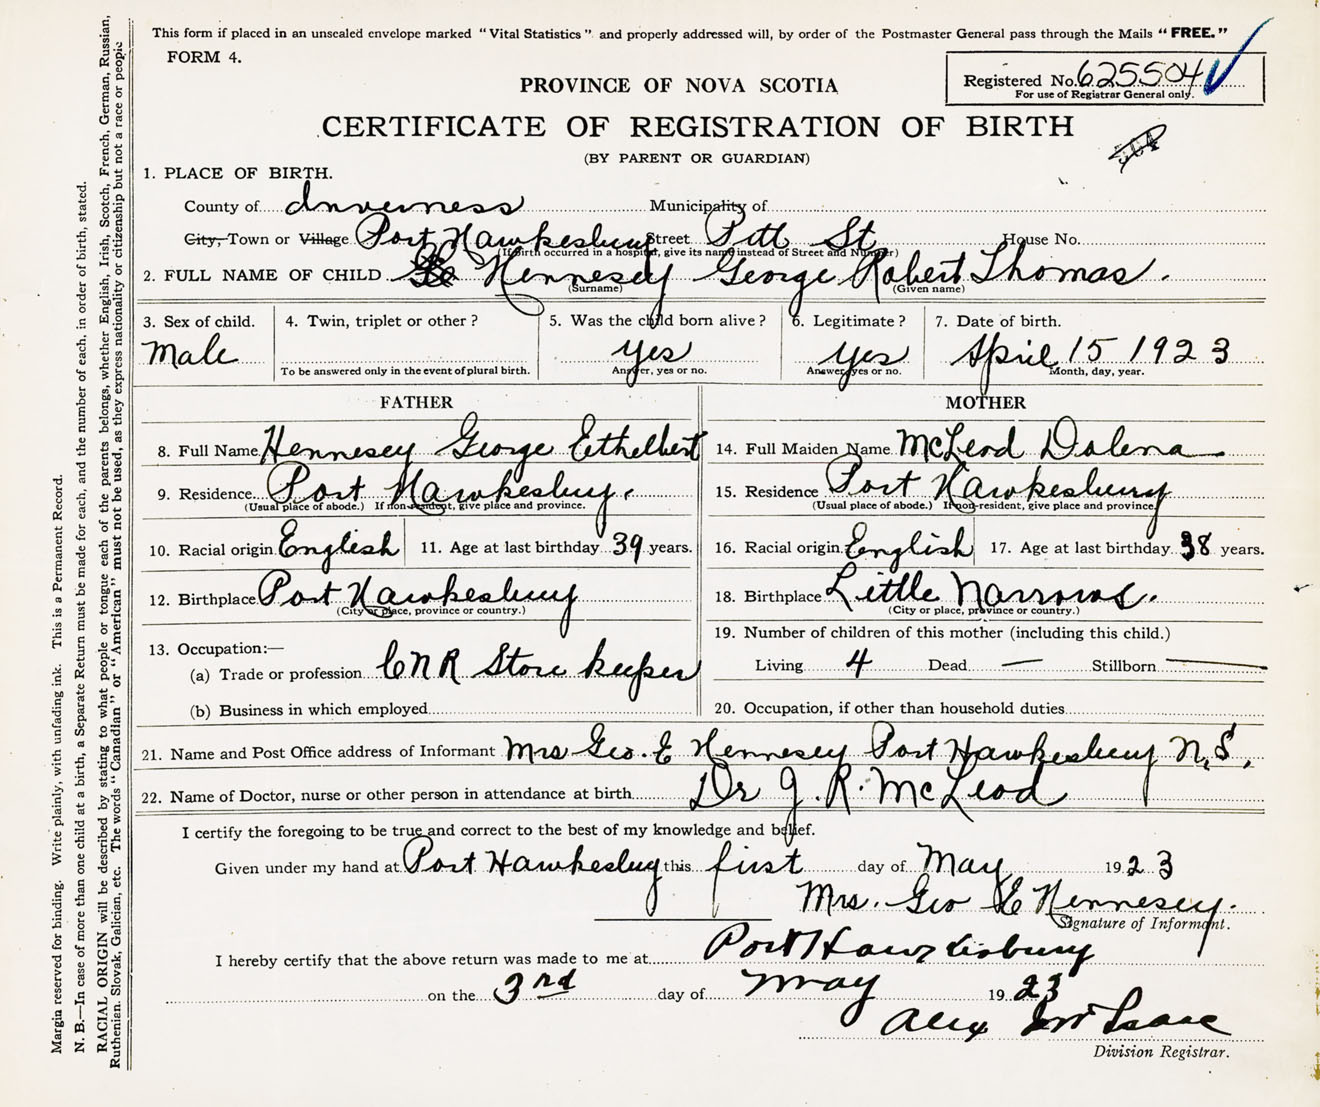 This form if placed in an unsealed envelope marked "Vital Statistics" and properly addressed will, by order of the Postmaster General pass through the Mails "FREE."
FORM 4.
Registered No. 625504
For use of Registrar General only.
PROVINCE OF NOVA SCOTIA
CERTIFICATE OF REGISTRATION OF BIRTH
(BY PARENT OR GUARDIAN)
1. PLACE OF BIRTH.
County of Inverness Municipality of
City, Town or Village Port Hawkesbury Street Pitt St House No.
(If birth occurred in a hospital, give its name instead of Street and Number)
2. FULL NAME OF CHILD Hennesey George Robert Thomas.
(Surname) (Given name)
3. Sex of child. 4. Twin, triplet or other? 5. Was the child born alive? 6. Legitimate? 7. Date of birth.
Male yes yes April 15 1923
To be answered only in the event of plural birth. Answer, yes or no. Answer, yes or no. Month, day, year.
FATHER MOTHER
8. Full Name Hennesey George Eithelbert 14. Full Maiden Name McLeod Dolena
9. Residence Port Hawkesbury. 15. Residence Port Hawkesbury
(Usual place of abode.) If non-resident, give place and province. (Usual place of abode.) If non-resident, give place and province.
10. Racial origin English 11. Age at last birthday 39 years. 16. Racial origin English 17. Age at last birthday 38 years.
12. Birthplace Port Hawkesbury 18. Birthplace Little Narrows.
(City or place, province or country.) (City or place, province or country.)
13. Occupation:— 19. Number of children of this mother (including this child.)
(a) Trade or profession CNR Store keeper Living 4 Dead — Stillborn —
(b) Business in which employed 20. Occupation, if other than household duties
21. Name and Post Office address of Informant Mrs Geo. E Hennesey Port Hawkesbury N.S.
22. Name of Doctor, nurse or other person in attendance at birth Dr J. R. McLeod
I certify the foregoing to be true and correct to the best of my knowledge and belief.
Given under my hand at Port Hawkesbury this first day of May 1923
Mrs. Geo E Hennesey.
Signature of Informant.
I hereby certify that the above return was made to me at Port Hawkesbury
on the 3rd day of May 1923
Alex McIsaac
Division Registrar.
Margin reserved for binding. Write plainly, with unfading ink. This is a Permanent Record.
N. B.—In case of more than one child at a birth, a Separate Return must be made for each, and the number of each, in order of birth, stated.
RACIAL ORIGIN will be described by stating to what people or tongue each of the parents belongs, whether English, Irish, Scotch, French, German, Russian,
Ruthenian. Slovak, Galician, etc. The words "Canadian" or "American" must not be used, as they express nationality or citizenship but not a race or people